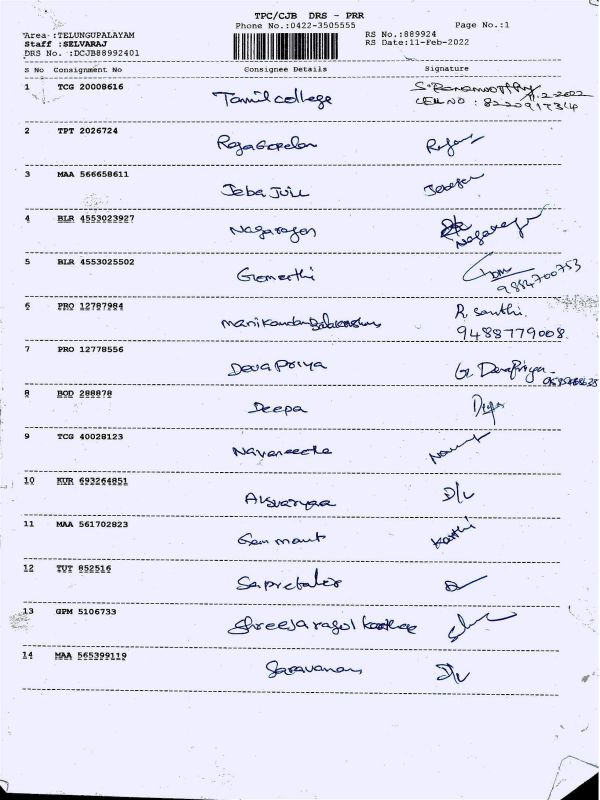 TPC/CJB DRS - PRR
Phone No.:0422-3505555 Page No.:1
Area :TELUNGUPALAYAM RS No.:889924
Staff :SELVARAJ RS Date:11-Feb-2022
DRS No. :DCJB88992401
S No Consignment No Consignee Details Signature
1 TCG 20008616 Tamil college
11.2.2022
CELL NO :
2 TPT 2026724 RajaGopalan
3 MAA 566658611 Jeba Juli
4 BLR 4553023927 Nagarajan Nagaraj
5 BLR 4553025502 Gomathi
9884700753
6 PRO 12787984 Manikandan R. Santhi
9488779008
7 PRO 12778556 Deva Priya G. DevaPriya
8 BOD 288878 Deepa
9 TCG 40028123 Navaneetha
10 KUR 693264851 D/v
11 MAA 561702823 Karthi
12 TUT 852516
13 GPM 5106733
14 MAA 565399119 Saravanan D/v